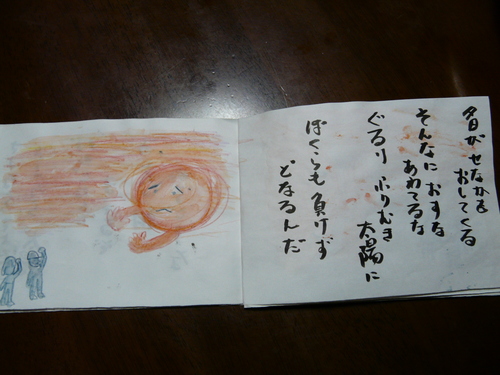 夕日がせなかを
おしてくる
そんなに おすな
あわてるな
ぐるり ふりむき
太陽に
ぼくらも 負けず
どなるんだ